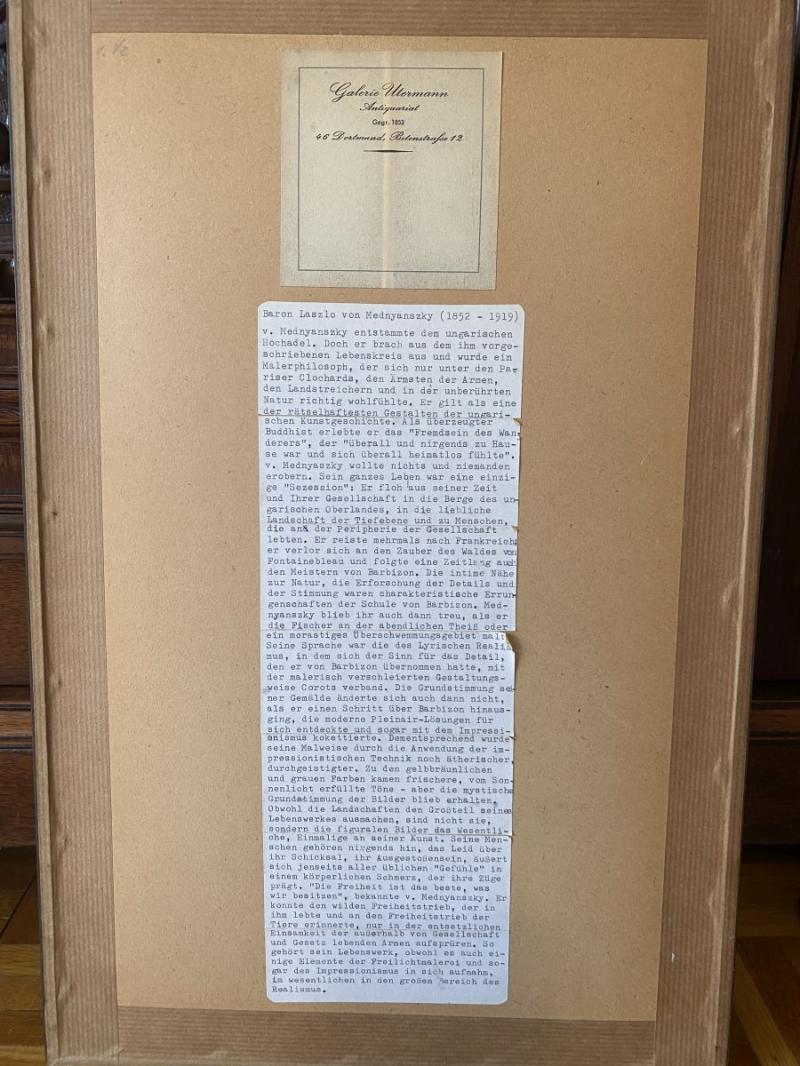 Galerie Utermann
Antiquariat
Gegr. 1853
46 Dortmund, Betenstraße 12
Baron Laszlo von Mednyanszky (1852 - 1919)
v. Mednyanszky entstammte dem ungarischen
Hochadel. Doch er brach aus dem ihm vorge-
schriebenen Lebenskreis aus und wurde ein
Malerphilosoph, der sich nur unter den Pa-
riser Clochards, den Ärmsten der Armen,
den Landstreichern und in der unberührten
Natur richtig wohlfühlte. Er gilt als eine
der rätselhaftesten Gestalten der ungari-
schen Kunstgeschichte. Als überzeugter
Buddhist erlebte er das "Fremdsein des Wan-
derers", der "überall und nirgends zu Hau-
se war und sich überall heimatlos fühlte".
v. Mednyaszky wollte nichts und niemanden
erobern. Sein ganzes Leben war eine einzi-
ge "Sezession": Er floh aus seiner Zeit
und Ihrer Gesellschaft in die Berge des un-
garischen Oberlandes, in die liebliche
Landschaft der Tiefebene und zu Menschen,
die an der Peripherie der Gesellschaft
lebten. Er reiste mehrmals nach Frankreich
er verlor sich an den Zauber des Waldes von
Fontainebleau und folgte eine Zeitlang auch
den Meistern von Barbizon. Die intime Nähe
zur Natur, die Erforschung der Details und
der Stimmung waren charakteristische Errun-
genschaften der Schule von Barbizon. Med-
nyanszky blieb ihr auch dann treu, als er
die Fischer an der abendlichen Theiß oder
ein morastiges Überschwemmungsgebiet malt
Seine Sprache war die des Lyrischen Realis
mus, in dem sich der Sinn für das Detail,
den er von Barbizon übernommen hatte, mit
der malerisch verschleierten Gestaltungs-
weise Corots verband. Die Grundstimmung sei-
ner Gemälde änderte sich auch dann nicht,
als er einen Schritt über Barbizon hinaus-
ging, die moderne Pleinair-Lösungen für
sich entdeckte und sogar mit dem Impressi-
onismus kokettierte. Dementsprechend wurde
seine Malweise durch die Anwendung der im-
pressionistischen Technik noch ätherischer,
durchgeistigter. Zu den gelbbräunlichen
und grauen Farben kamen frischere, vom Son-
nenlicht erfüllte Töne - aber die mystische
Grundstimmung der Bilder blieb erhalten.
Obwohl die Landschaften den Großteil seines
Lebenswerkes ausmachen, sind nicht sie,
sondern die figuralen Bilder das Wesentli-
che, Einmalige an seiner Kunst. Seine Men-
schen gehören nirgends hin, das Leid über
ihr Schicksal, ihr Ausgestoßensein, äußert
sich jenseits aller üblichen "Gefühle" in
einem körperlichen Schmerz, der ihre Züge
prägt. "Die Freiheit ist das beste, was
wir besitzen", bekannte v. Mednyanszky. Er
konnte den wilden Freiheitstrieb, der in
ihm lebte und an den Freiheitstrieb der
Tiere erinnerte, nur in der entsetzlichen
Einsamkeit der außerhalb von Gesellschaft
und Gesetz lebenden Armen aufspüren. So
gehört sein Lebenswerk, obwohl es auch ei-
nige Elemente der Freilichtmalerei und so-
gar des Impressionismus in sich aufnahm,
im wesentlichen in den großen Bereich des
Realismus.